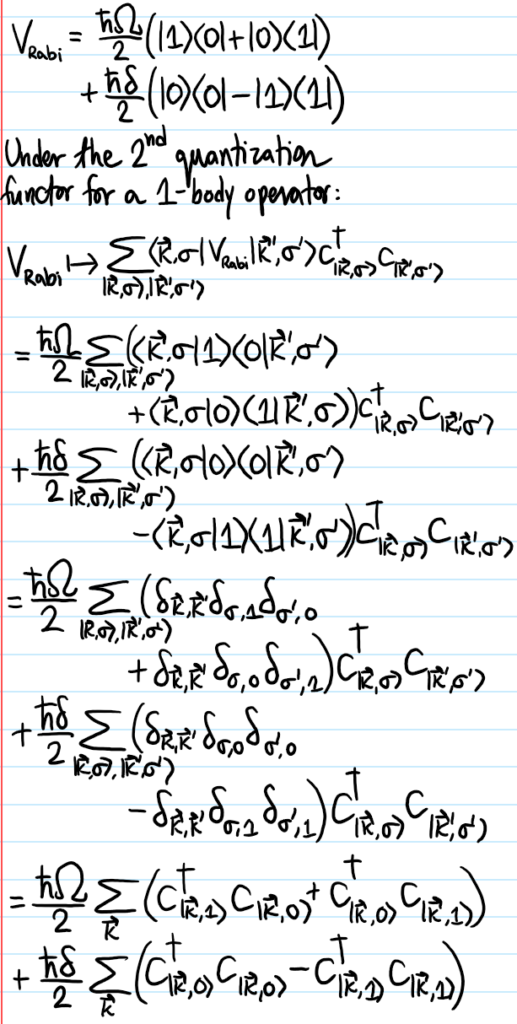 V_Rabi = ħΩ/2 (|1⟩⟨0|+|0⟩⟨1|)
+ ħδ/2 (|0⟩⟨0|−|1⟩⟨1|)
Under the 2nd quantization
functor for a 1-body operator:
V_Rabi ↦ Σ_{|k⃗,σ⟩,|k⃗',σ'⟩} ⟨k⃗,σ|V_Rabi|k⃗',σ'⟩ c†_{|k⃗,σ⟩} c_{|k⃗',σ'⟩}
= ħΩ/2 Σ_{|k⃗,σ⟩,|k⃗',σ'⟩} (⟨k⃗,σ|1⟩⟨0|k⃗',σ'⟩
+⟨k⃗,σ|0⟩⟨1|k⃗',σ⟩) c†_{|k⃗,σ⟩} c_{|k⃗',σ'⟩}
+ ħδ/2 Σ_{|k⃗,σ⟩,|k⃗',σ'⟩} (⟨k⃗,σ|0⟩⟨0|k⃗',σ'⟩
−⟨k⃗,σ|1⟩⟨1|k⃗',σ'⟩) c†_{|k⃗,σ⟩} c_{|k⃗',σ'⟩}
= ħΩ/2 Σ_{|k⃗,σ⟩,|k⃗',σ'⟩} (δ_{k⃗,k⃗'} δ_{σ,1} δ_{σ',0}
+ δ_{k⃗,k⃗'} δ_{σ,0} δ_{σ',1}) c†_{|k⃗,σ⟩} c_{|k⃗',σ'⟩}
+ ħδ/2 Σ_{|k⃗,σ⟩,|k⃗',σ'⟩} (δ_{k⃗,k⃗'} δ_{σ,0} δ_{σ',0}
− δ_{k⃗,k⃗'} δ_{σ,1} δ_{σ',1}) c†_{|k⃗,σ⟩} c_{|k⃗',σ'⟩}
= ħΩ/2 Σ_{k⃗} (c†_{|k⃗,1⟩} c_{|k⃗,0⟩} + c†_{|k⃗,0⟩} c_{|k⃗,1⟩})
+ ħδ/2 Σ_{k⃗} (c†_{|k⃗,0⟩} c_{|k⃗,0⟩} − c†_{|k⃗,1⟩} c_{|k⃗,1⟩})